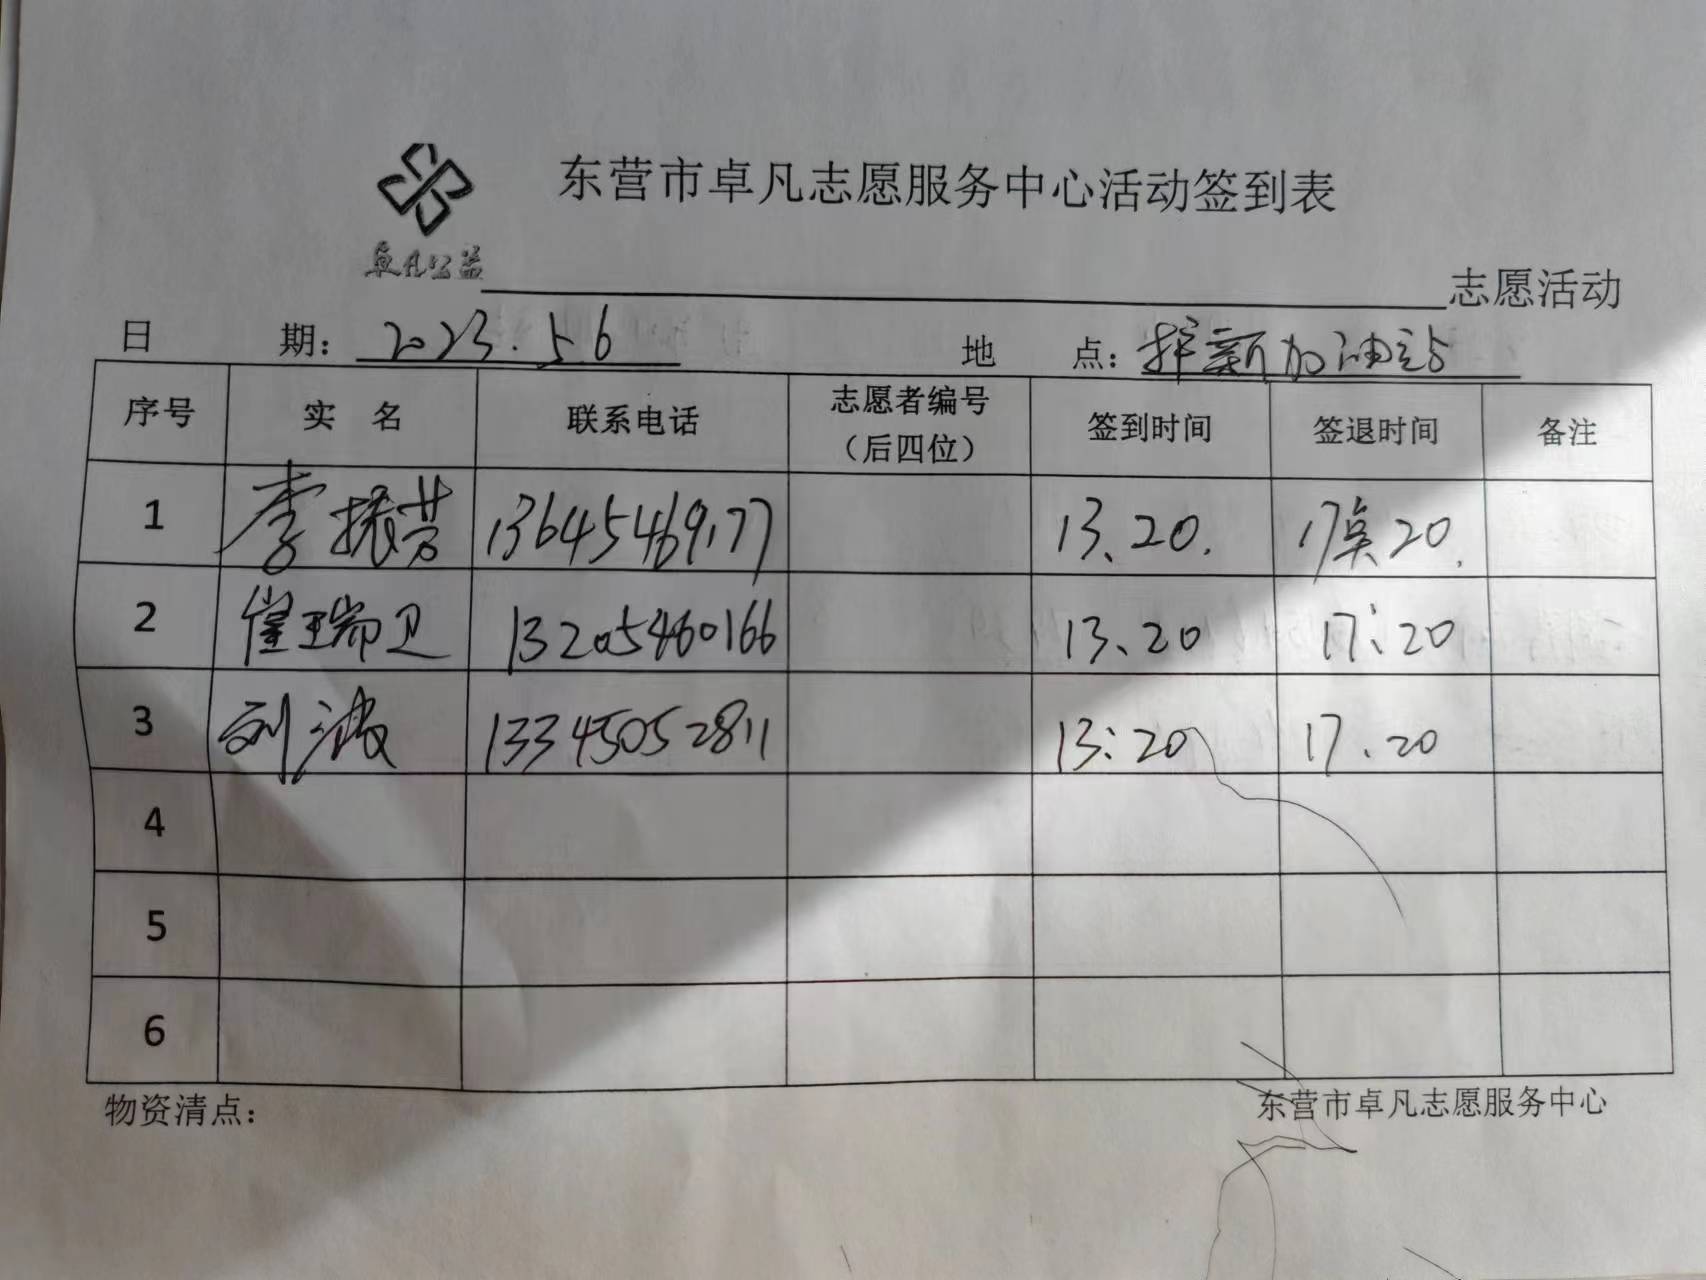 东营市卓凡志愿服务中心活动签到表
卓凡公益
志愿活动
日 期：2023.5.6 地 点：护新加油站
序号 实 名 联系电话 志愿者编号（后四位） 签到时间 签退时间 备注
1 李振芳 13645469177 13、20. 17点20.
2 崔瑞卫 13205460166 13、20 17:20
3 刘波 13345052811 13:20 17.20
4
5
6
物资清点： 东营市卓凡志愿服务中心